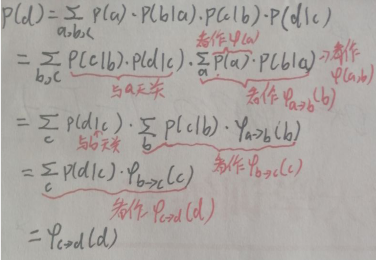 P(d) = ∑_{a,b,c} P(a)·P(b|a)·P(c|b)·P(d|c)
看作φ(a)
= ∑_{b,c} P(c|b)·P(d|c)·∑_a P(a)·P(b|a) →看作φ(a,b)
与a无关 看作φ_{a→b}(b)
= ∑_c P(d|c)·∑_b P(c|b)·φ_{a→b}(b)
与b无关 看作φ_{b→c}(c)
= ∑_c P(d|c)·φ_{b→c}(c)
看作φ_{c→d}(d)
= φ_{c→d}(d)